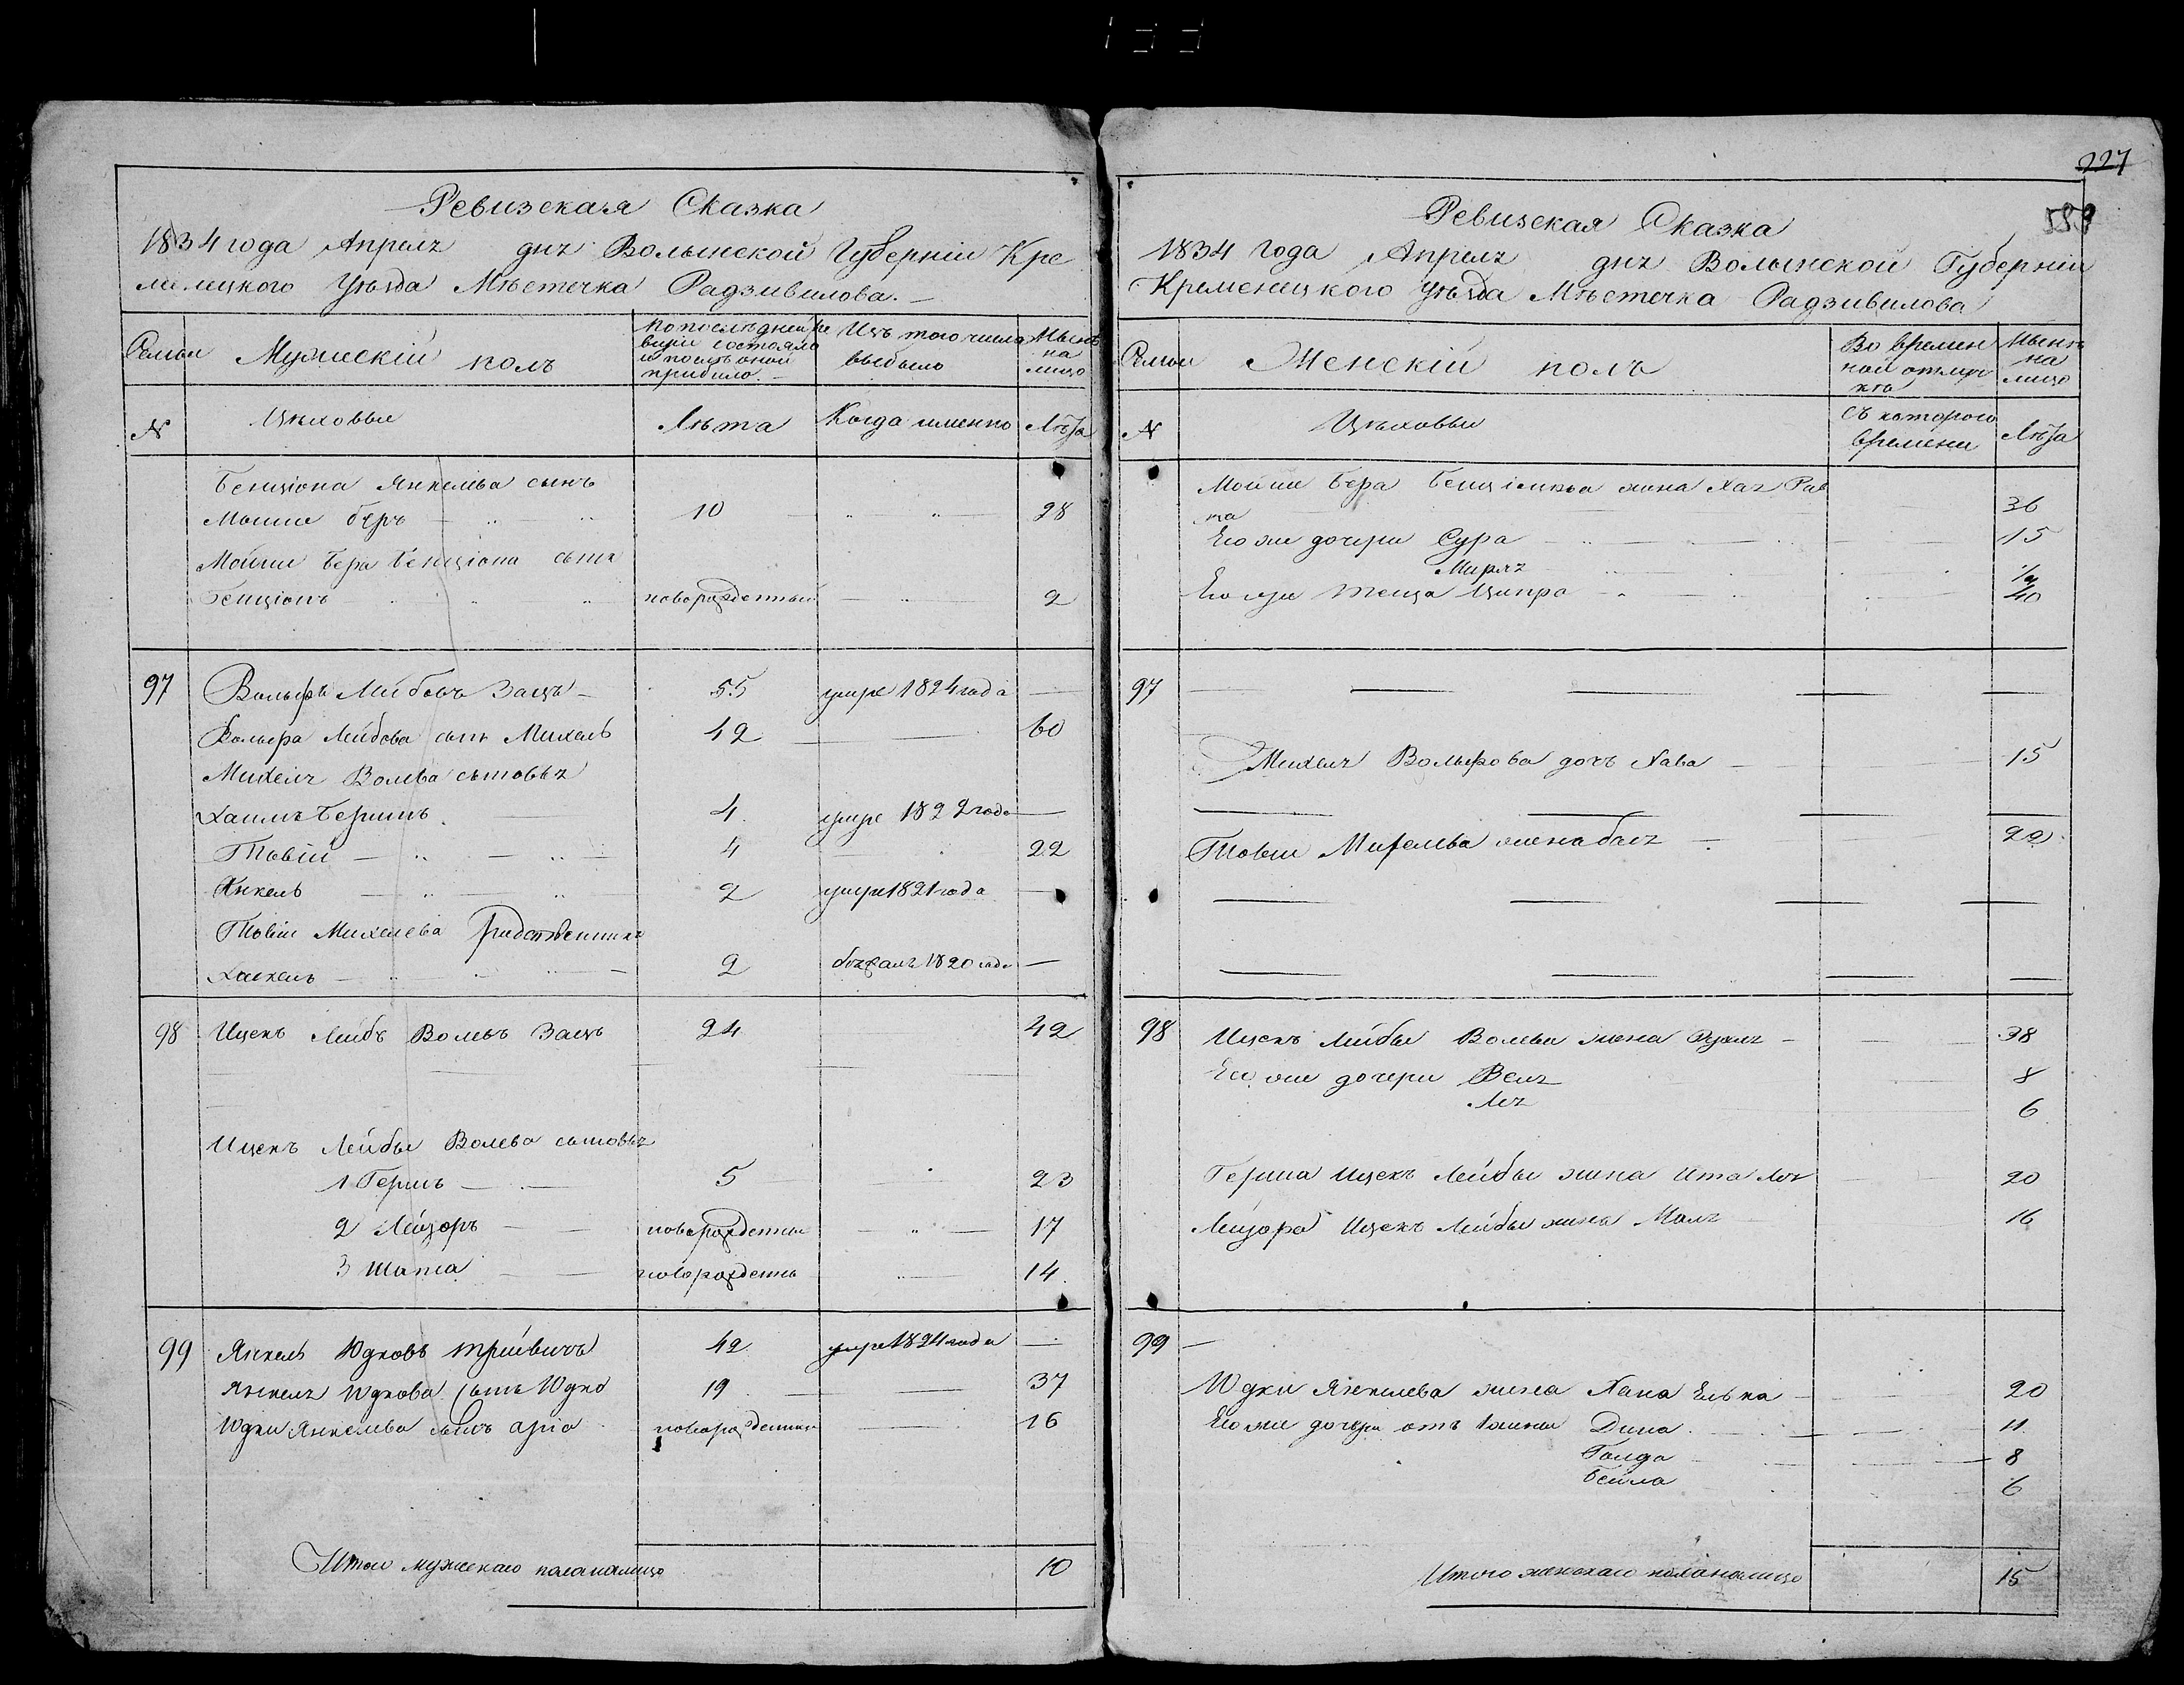 227
Ревизская Сказка
1834 года Апреля дня Волынской Губерніи Кре
менецкого Уѣзда Мѣстечка Радзивилова.
Семьи
Мужескій полъ
По послѣдней ре
визіи состояло
и послѣ оной
прибыло.
Изъ того числа
выбыло
Нынѣ
на
лицо
N
Цѣховые
Лѣта
Когда именно
Лѣта
Бенціона Янкелева сынъ
Мошие беръ 10 28
Мойши Бера Бенціона сынъ
Бенціонъ новорожденный 2
97 Вольфъ Лейбовъ Зацъ 55 умре 1824 года —
Вольфа Лейбова сынъ Михель 42 60
Михеля Волва сыновья
Хаимъ Бершъ 4 умре 1822 года —
Товій 4 22
Янкель 2 умре 1821 года —
Товіи Михелева родственникъ
Хаскель 2 бѣжалъ 1820 года —
98 Ицекъ Лейбъ Волевъ Зацъ 24 42
Ицекъ Лейбы Волева сыновья
1 Гершъ 5 23
2 Лейзоръ новорожденные 17
3 Шапса новорожденъ 14
99 Янкель Юдковъ 42 умре 1824 года —
Янкеля Юдкова сынъ Юдко 19 37
Юдки Янкелева сынъ Аріо новорожденный 16
Итого мужескаго пола налицо 10
588
Ревизская Сказка
1834 года Апреля дня Волынской Губерніи
Кременецкого Уѣзда Мѣстечка Радзивилова
Семьи
Женскій полъ
Во времен
ной отлуч
кѣ
Нынѣ
на
лицо
N
Цѣховые
Съ котораго
времени
Лѣта
Мойши Бера Бенціонова жена Хая
36
Его же дочери Сура 15
Миря 1/2
Его же теща Ципра 40
97
Михеля Вольфова дочь Хава 15
Товіи Михелева жена бася 22
98 Ицекъ Лейбы Волева жена 38
Его же дочери Веля 8
Лея 6
Герша Ицекъ Лейбы жена Ита Лея 20
Лейзора Ицекъ Лейбы жена Маля 16
99 —
Юдки Янкелева жена Хана Елька 20
Его же дочери отъ 1 жены Дина 11
Голда 8
Бейла 6
Итого женскаго пола налицо 15